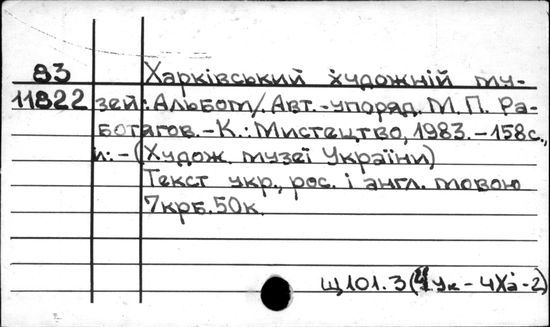 83 Харківський художній му-
11822 зей: Альбом/ Авт.-упоряд. М.П. Ра-
ботягов.-К.: Мистецтво, 1983.-158с.,
іл:-(Худож. музеї України)
Текст укр., рос. і англ. мовою
7крб.50к.
Щ101.3(4Ук-4Ха-2)